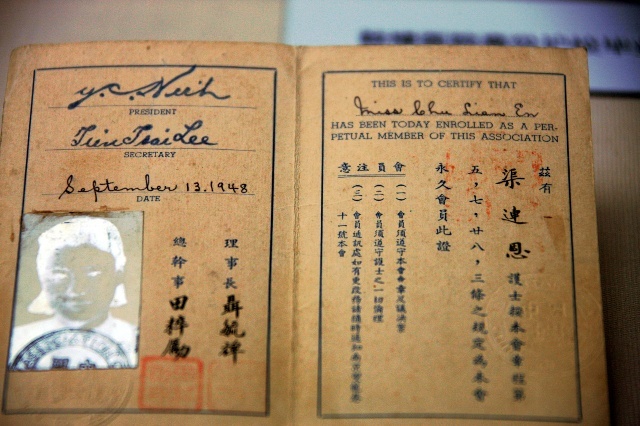 Y. C. Nieh
PRESIDENT
Tien Tsai Lee
SECRETARY
September 13, 1948
DATE
理事長 聶毓禪
總幹事 田粹勵
THIS IS TO CERTIFY THAT
Miss Chu Lien En
HAS BEEN TODAY ENROLLED AS A PER-
PETUAL MEMBER OF THIS ASSOCIATION
茲有
渠連恩 護士按本會會章第
五,七,廿八,三條之規定為本會
永久會員此證
會員注意
(一) 會員須遵守本會會章及議決案
(二) 會員須遵守護士之一切倫理
(三) 會員通訊處如有更改務請隨時通知南京
十一號本會